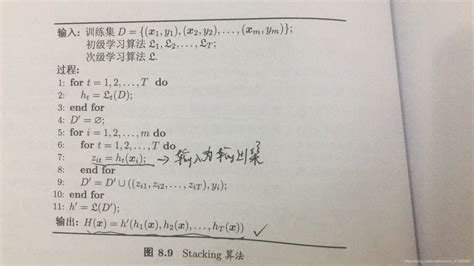 输入: 训练集 D = {(x₁, y₁), (x₂, y₂), ..., (xₘ, yₘ)};
初级学习算法 𝔏₁, 𝔏₂, ..., 𝔏_T;
次级学习算法 𝔏.
过程:
1: for t = 1, 2, ..., T do
2: hₜ = 𝔏ₜ(D);
3: end for
4: D′ = ∅;
5: for i = 1, 2, ..., m do
6: for t = 1, 2, ..., T do
7: zᵢₜ = hₜ(xᵢ); → 输入为输出
8: end for
9: D′ = D′ ∪ ((zᵢ₁, zᵢ₂, ..., zᵢ_T), yᵢ);
10: end for
11: h′ = 𝔏(D′);
输出: H(x) = h′(h₁(x), h₂(x), ..., h_T(x)) ✓
图 8.9 Stacking 算法